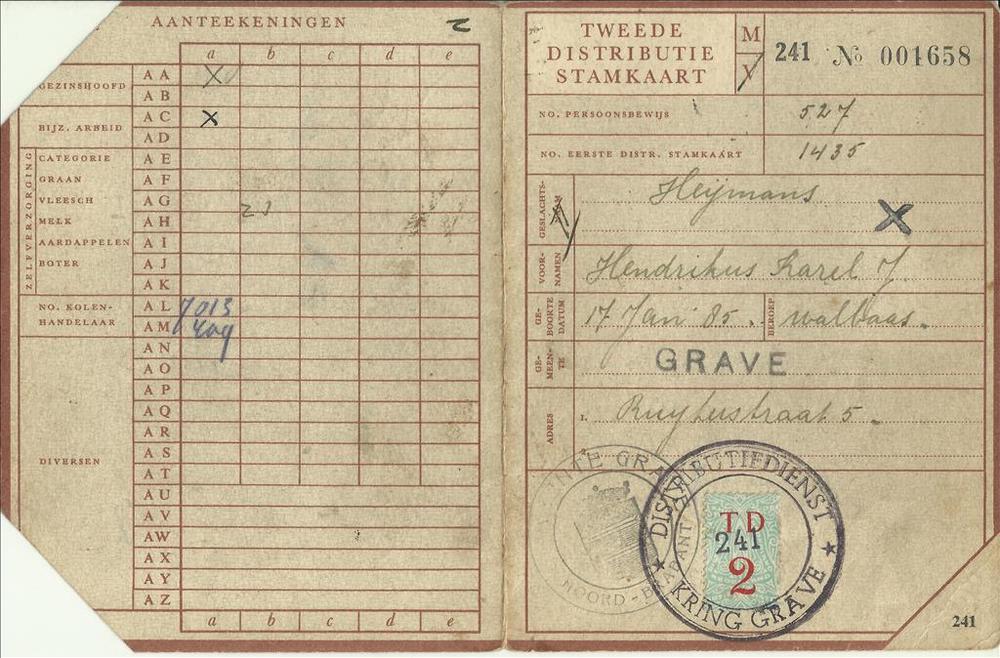 AANTEEKENINGEN
2
a b c d e
GEZINSHOOFD
AA X
AB
BIJZ. ARBEID
AC X
AD
ZELFVERZORGING
CATEGORIE AE
GRAAN AF
VLEESCH AG
MELK AH
AARDAPPELEN AI
BOTER AJ
AK
NO. KOLEN-
HANDELAAR
AL 7013
AM
DIVERSEN
AN
AO
AP
AQ
AR
AS
AT
AU
AV
AW
AX
AY
AZ
a b c d e
TWEEDE
DISTRIBUTIE
STAMKAART
M
V
241 No 001658
NO. PERSOONSBEWIJS 527
NO. EERSTE DISTR. STAMKAART 1435
GESLACHTS-
NAAM
Heijmans
X
VOOR-
NAMEN
Hendrikus Karel J
GE-
BOORTE
DATUM
17 Jan 85.
BEROEP
walbaas.
GE-
MEEN-
TE
GRAVE
ADRES
1. Ruyterstraat 5.
GRAVE
NOORD-BRABANT
DISTRIBUTIEDIENST
TD
241
2
★ KRING GRAVE ★
241